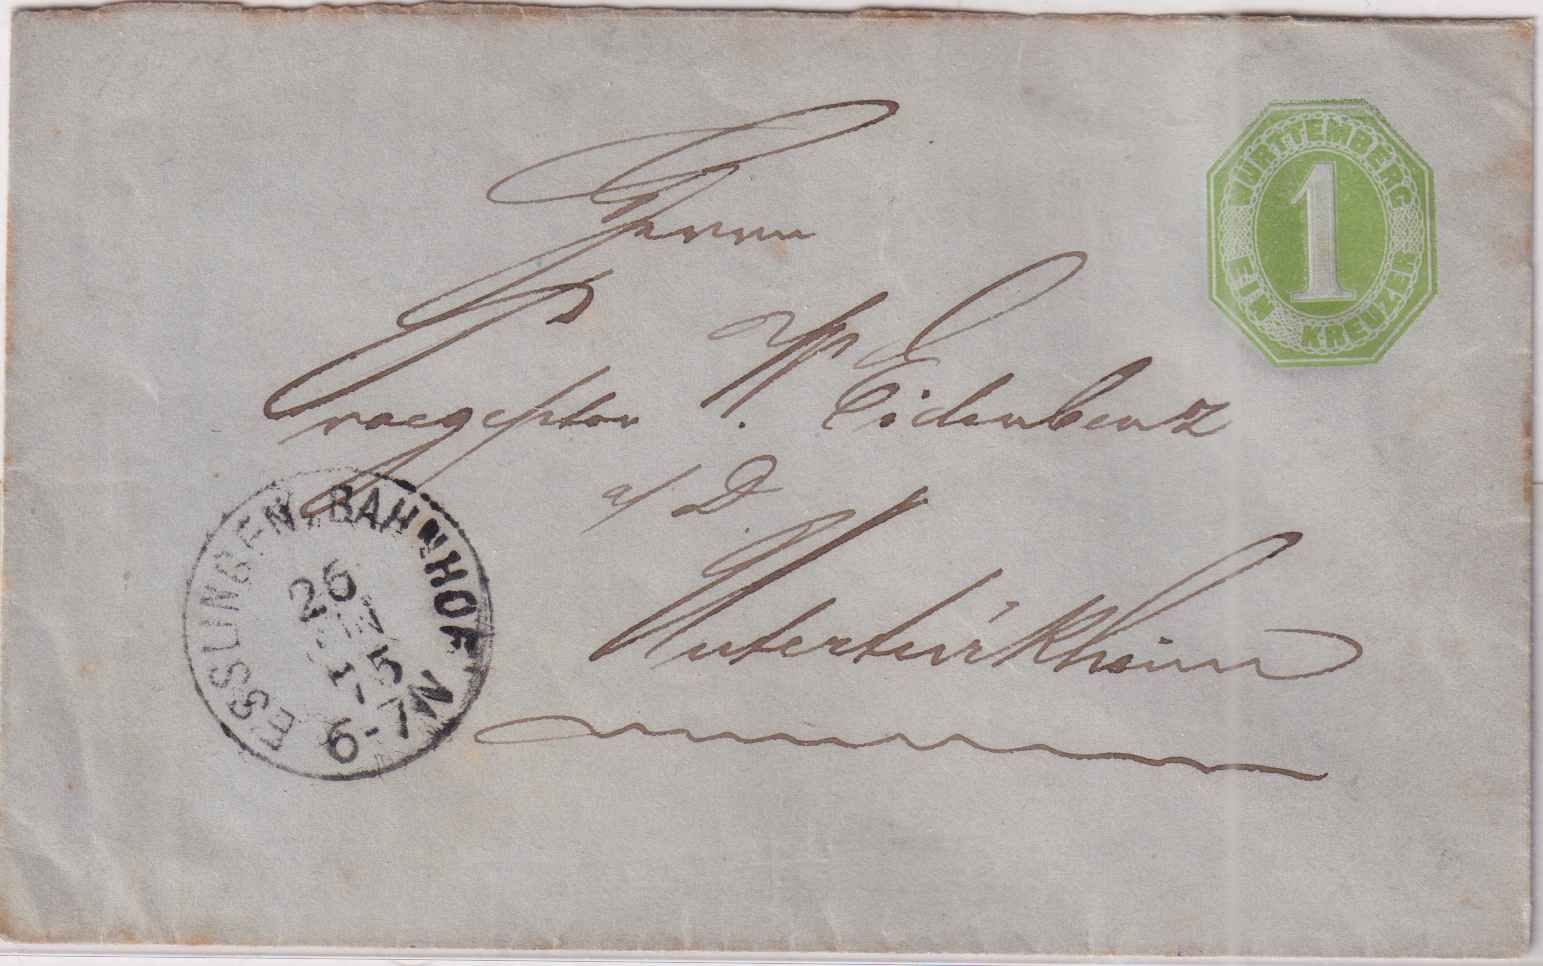 WÜRTTEMBERG
1
EIN KREUZER
Herrn
Praeceptor Eidenbenz
a/D.
Untertürkheim
ESSLINGEN, BAHNHOF
26
75
6-7N